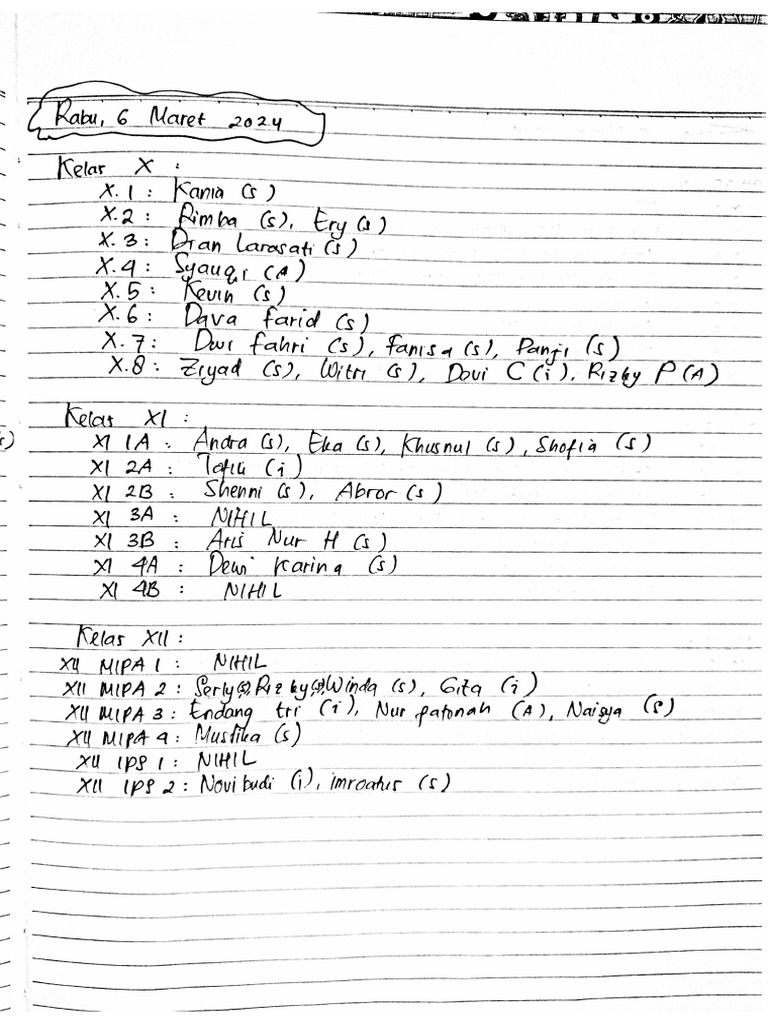 Rabu, 6 Maret 2024
Kelas X :
X.1 : Kania (s)
X.2 : Rimba (s), Ery (s)
X.3 : Dian Larasati (s)
X.4 : Syauqi (A)
X.5 : Kevin (s)
X.6 : Dava farid (s)
X.7 : Dwi fahri (s), fanisa (s), Panji (s)
X.8 : Ziyad (s), Witri (s), Davi C (i), Rizky P (A)
Kelas XI :
XI 1A : Andra (s), Eka (s), Khusnul (s), Shofia (s)
XI 2A : (i)
XI 2B : Shenni (s), Abror (s)
XI 3A : NIHIL
XI 3B : Aris Nur H (s)
XI 4A : Dewi Karina (s)
XI 4B : NIHIL
Kelas XII :
XII MIPA 1 : NIHIL
XII MIPA 2 : Serly(s), Rizky(s), Winda (s), Gita (i)
XII MIPA 3 : Endang tri (i), Nur fatonah (A), Naisya (s)
XII MIPA 4 : Mustika (s)
XII IPS 1 : NIHIL
XII IPS 2 : Novi budi (i), imroatus (s)